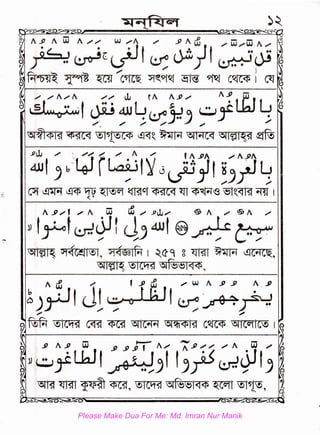 মনযিল ১২
قَدْ تَّبَيَّنَ الرُّشْدُ مِنَ الْغَيِّ فَمَنْ يَّكْفُرْ
নিশ্চয়ই সুস্পষ্ট হয়ে গেছে সত্যপথ ভ্রান্ত পথ থেকে। যে
بِالطَّاغُوْتِ وَيُؤْمِنْ بِاللّٰهِ فَقَدِ اسْتَمْسَكَ
অস্বীকার করবে তাগুতকে এবং ঈমান আনবে আল্লাহ্র প্রতি
بِالْعُرْوَةِ الْوُثْقٰى لَا انْفِصَامَ لَهَا وَاللّٰهُ
সে এমন এক দৃঢ় হাতল ধারণ করবে যা কখনও ভাংবার নয়।
سَمِيْعٌ عَلِيْمٌ اَللّٰهُ وَلِيُّ الَّذِيْنَ اٰمَنُوْا
আল্লাহ্ সর্বশ্রোতা, সর্বজ্ঞানী। ২৫৭ ঃ যারা ঈমান এনেছে,
আল্লাহ্ তাদের অভিভাবক,
يُخْرِجُهُمْ مِّنَ الظُّلُمٰتِ اِلَى النُّوْرِ
তিনি তাদের বের করে আনেন অন্ধকার থেকে আলোতে।
وَالَّذِيْنَ كَفَرُوْا اَوْلِيٰٓئُهُمُ الطَّاغُوْتُ
আর যারা কুফরী করে, তাদের অভিভাবক হলো তাগুত,
Please Make Dua For Me: Md: Imran Nur Manik